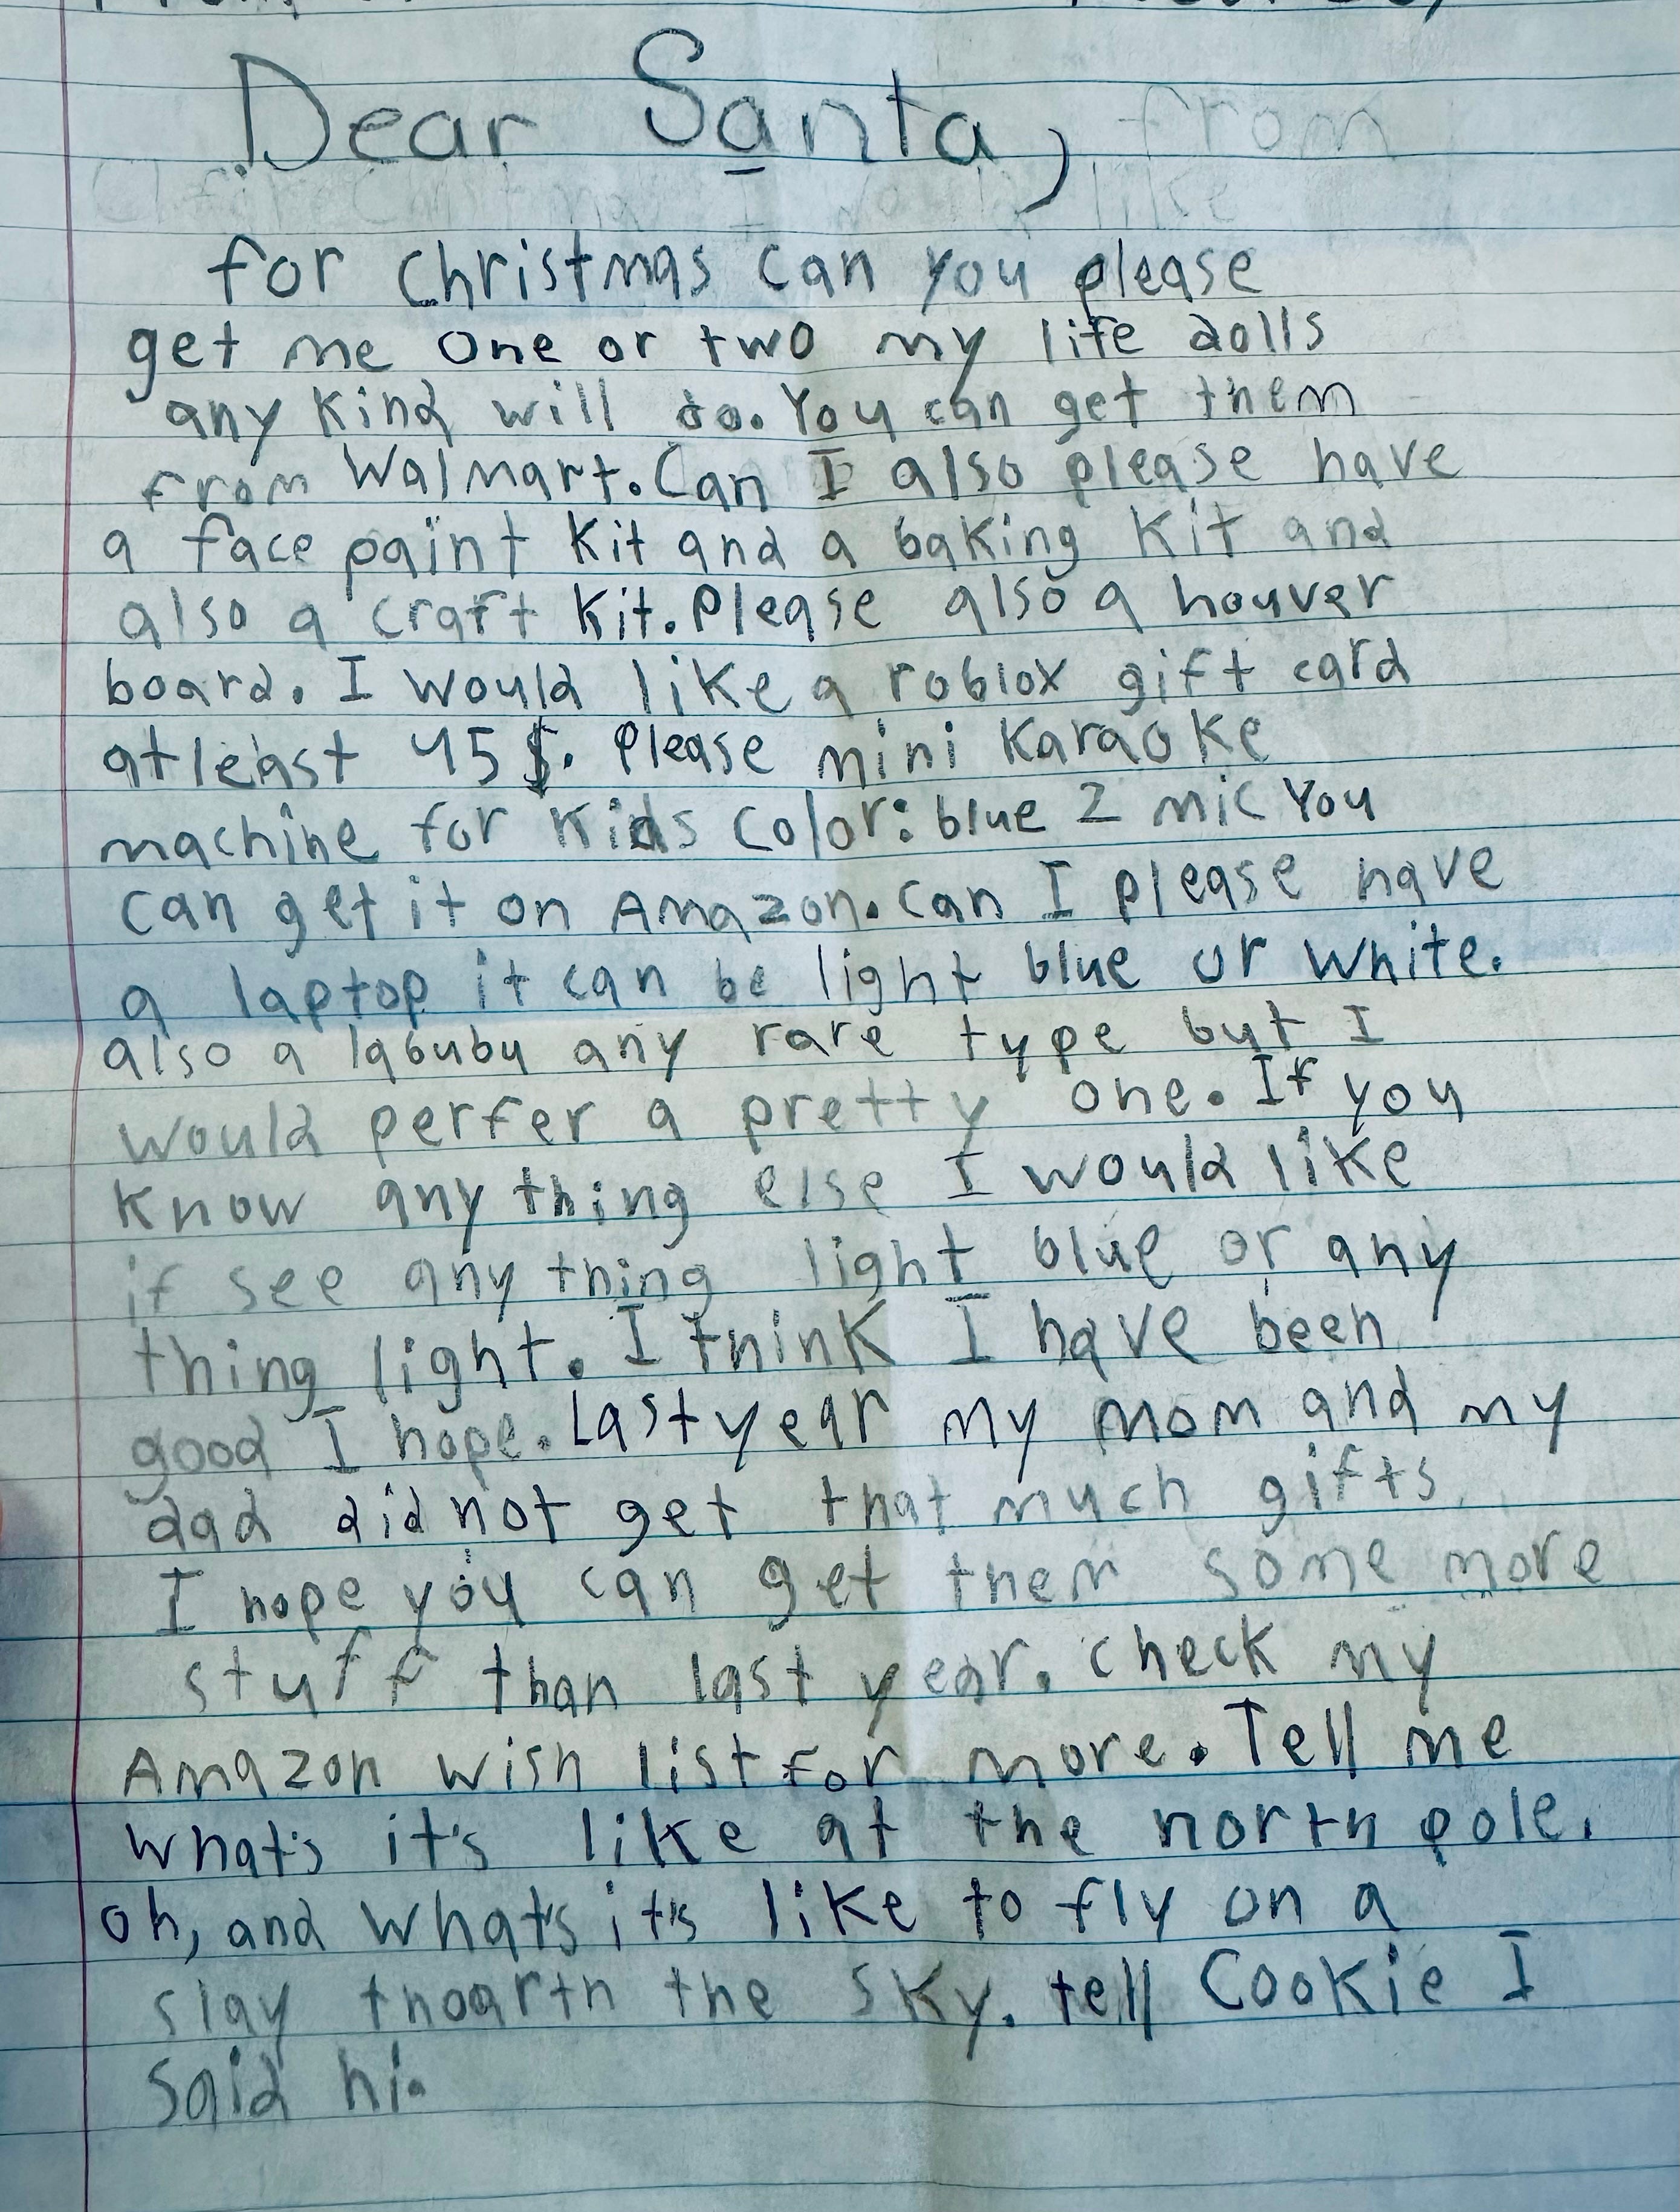 Dear Santa, from
Christmas I would like
for christmas can you please
get me one or two my life dolls
any kind will do. You can get them
from Walmart. Can I also please have
a face paint kit and a baking kit and
also a craft kit. Please also a houver
board. I would like a roblox gift card
atleast 45$. Please mini karaoke
machine for kids color: blue 2 mic You
can get it on Amazon. can I please have
a laptop it can be light blue or white.
also a labubu any rare type but I
would perfer a pretty one. If you
know any thing else I would like
if see any thing light blue or any
thing light. I think I have been
good I hope. Last year my mom and my
dad did not get that much gifts
I hope you can get them some more
stuff than last year. check my
Amazon wish list for more. Tell me
what's it's like at the north pole.
oh, and what's it's like to fly on a
slay thoarth the sky. tell Cookie I
said hi.